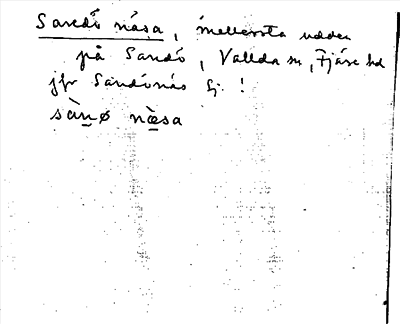 Sandö näsa, mellersta udden
på Sandö, Vallda sn, Fjäre hd
jfr Sandönäs Ej !
sàn̲ø næ̲̀sa